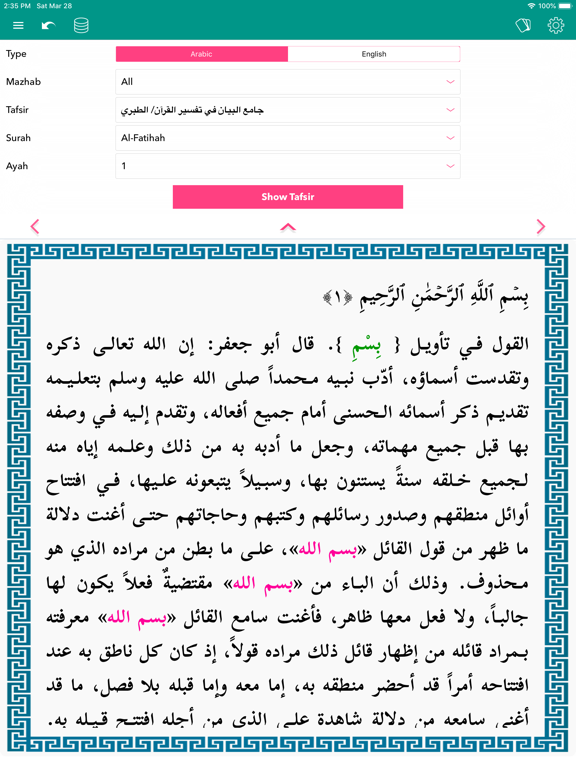 2:35 PM Sat Mar 28 100%
Type Arabic English
Mazhab All
Tafsir جامع البيان في تفسير القرآن/ الطبري
Surah Al-Fatihah
Ayah 1
Show Tafsir
بِسۡمِ ٱللَّهِ ٱلرَّحۡمَٰنِ ٱلرَّحِيمِ ﴿١﴾
القول فـي تأويـل { بِسْمِ }. قال أبو جعفر: إن الله تعالـى ذكره
وتقدست أسماؤه، أدّب نبـيه مـحمداً صلى الله عليه وسلم بتعلـيـمه
تقديـم ذكر أسمائه الـحسنى أمام جميع أفعاله، وتقدم إلـيه فـي وصفه
بها قبل جميع مهماته، وجعل ما أدبه به من ذلك وعلـمه إياه منه
لـجميع خـلقه سنةً يستنون بها، وسبـيلاً يتبعونه علـيها، فـي افتتاح
أوائل منطقهم وصدور رسائلهم وكتبهم وحاجاتهم حتـى أغنت دلالة
ما ظهر من قول القائل «بسم الله»، علـى ما بطن من مراده الذي هو
مـحذوف. وذلك أن البـاء من «بسم الله» مقتضيةٌ فعلاً يكون لها
جالبـاً، ولا فعل معها ظاهر، فأغنت سامع القائل «بسم الله» معرفته
بـمراد قائله من إظهار قائل ذلك مراده قولاً، إذ كان كل ناطق به عند
افتتاحه أمراً قد أحضر منطقه به، إما معه وإما قبله بلا فصل، ما قد
أغنى سامعه من دلالة شاهدة علـى الذي من أجله افتتـح قـيـله به.